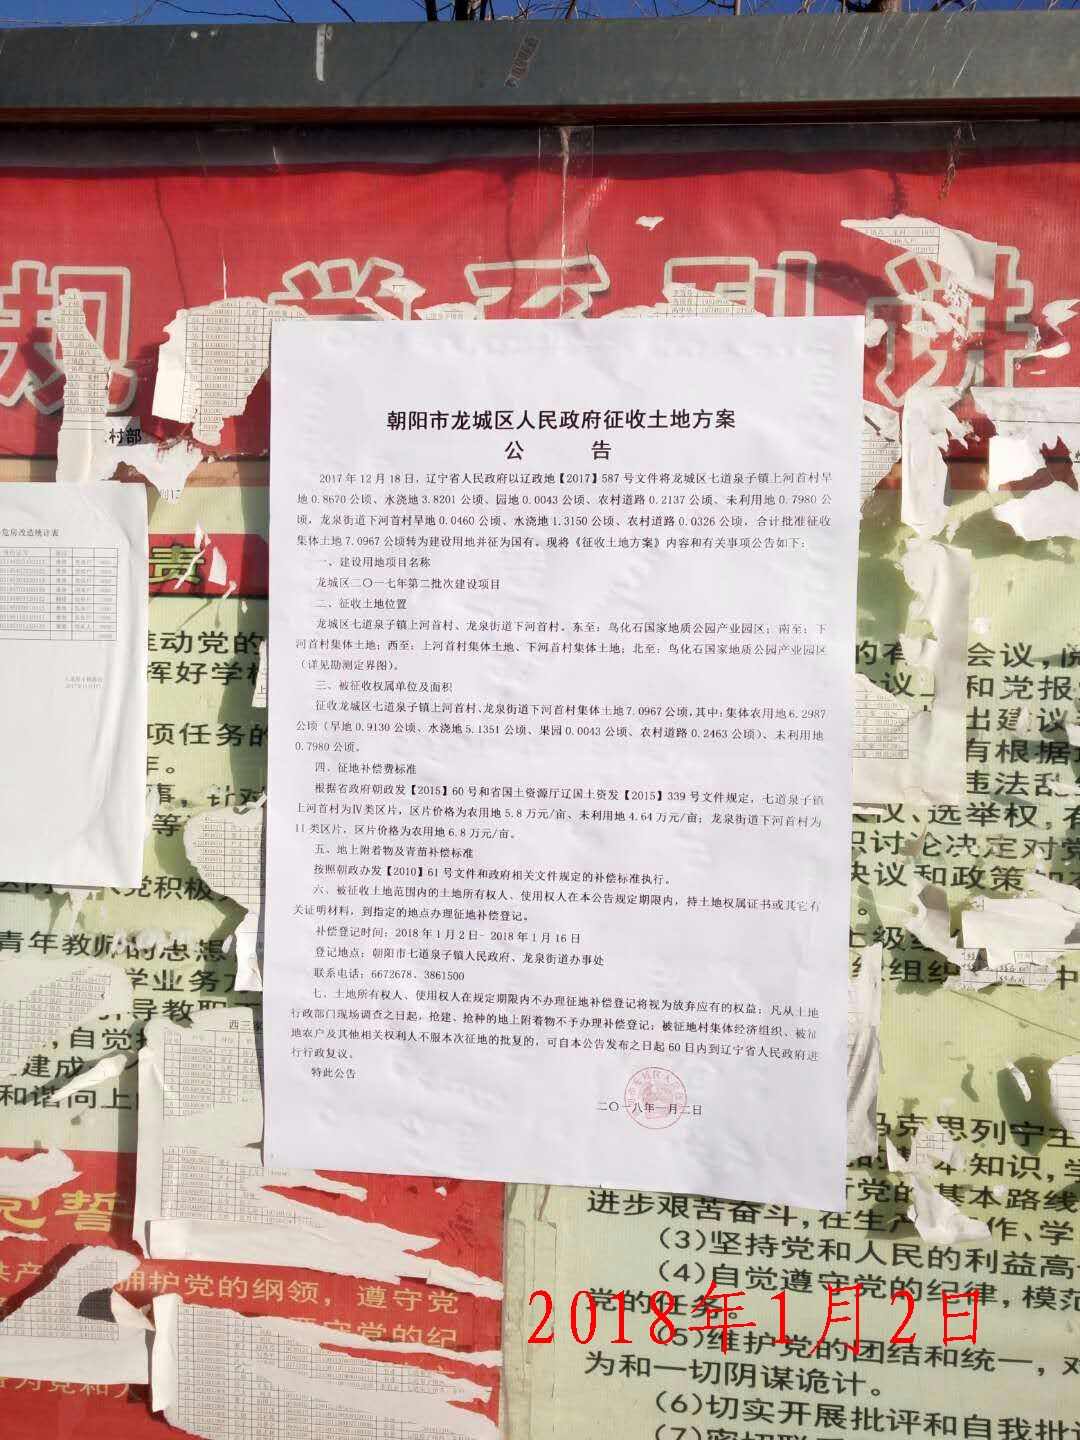 朝阳市龙城区人民政府征收土地方案
公 告
2017年12月18日，辽宁省人民政府以辽政地【2017】587号文件将龙城区七道泉子镇上河首村旱
地0.8670公顷、水浇地3.8201公顷、园地0.0043公顷、农村道路0.2137公顷、未利用地0.7980公
顷，龙泉街道下河首村旱地0.0460公顷、水浇地1.3150公顷、农村道路0.0326公顷，合计批准征收
集体土地7.0967公顷转为建设用地并征为国有。现将《征收土地方案》内容和有关事项公告如下：
一、建设用地项目名称
龙城区二〇一七年第二批次建设项目
二、征收土地位置
龙城区七道泉子镇上河首村、龙泉街道下河首村。东至：鸟化石国家地质公园产业园区；南至：下
河首村集体土地；西至：上河首村集体土地、下河首村集体土地；北至：鸟化石国家地质公园产业园区
（详见勘测定界图）。
三、被征收权属单位及面积
征收龙城区七道泉子镇上河首村、龙泉街道下河首村集体土地7.0967公顷，其中：集体农用地6.2987
公顷（旱地0.9130公顷、水浇地5.1351公顷、果园0.0043公顷、农村道路0.2463公顷）、未利用地
0.7980公顷。
四、征地补偿费标准
根据省政府朝政发【2015】60号和省国土资源厅辽国土资发【2015】339号文件规定，七道泉子镇
上河首村为Ⅳ类区片，区片价格为农用地5.8万元/亩、未利用地4.64万元/亩；龙泉街道下河首村为
II类区片，区片价格为农用地6.8万元/亩。
五、地上附着物及青苗补偿标准
按照朝政办发【2010】61号文件和政府相关文件规定的补偿标准执行。
六、被征收土地范围内的土地所有权人、使用权人在本公告规定期限内，持土地权属证书或其它有
关证明材料，到指定的地点办理征地补偿登记。
补偿登记时间：2018年1月2日-2018年1月16日
登记地点：朝阳市七道泉子镇人民政府、龙泉街道办事处
联系电话：6672678、3861500
七、土地所有权人、使用权人在规定期限内不办理征地补偿登记将视为放弃应有的权益；凡从土地
行政部门现场调查之日起，抢建、抢种的地上附着物不予办理补偿登记；被征地村集体经济组织、被征
地农户及其他相关权利人不服本次征地的批复的，可自本公告发布之日起60日内到辽宁省人民政府进
行行政复议。
特此公告
二〇一八年一月二日
村部
危房改造统计表
责
推动党的
挥好学校
项任务的
青年教师的思想
学业务
自觉
建成
和谐向上
的有
会议，阅
和党报
出建议
有根据
违法乱
权、选举权，有
讨论决定对党
决议和政策如
马克思列宁主
基本知识，学
党的基本路线
进步艰苦奋斗，在生产 作、学
（3）坚持党和人民的利益高
（4）自觉遵守党的纪律，模范
党的任务。
（5）维护党的团结和统一，对
为和一切阴谋诡计。
（6）切实开展批评和自我批
（7）密切联
誓
共产 拥护党的纲领，遵守党
2018年1月2日